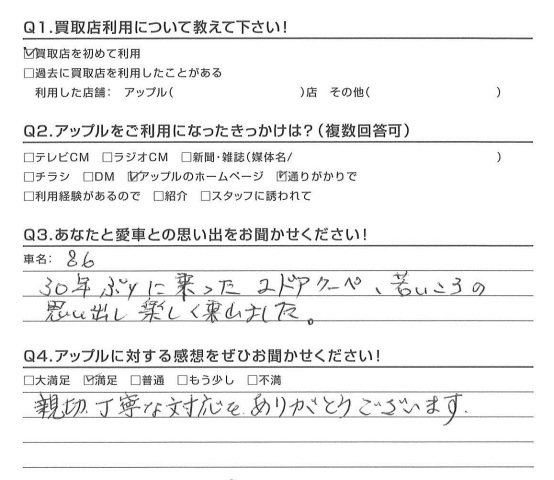 Q1.買取店利用について教えて下さい!
☑買取店を初めて利用
□過去に買取店を利用したことがある
利用した店舗: アップル( )店 その他( )
Q2.アップルをご利用になったきっかけは?(複数回答可)
□テレビCM □ラジオCM □新聞・雑誌(媒体名/ )
□チラシ □DM ☑アップルのホームページ ☑通りがかりで
□利用経験があるので □紹介 □スタッフに誘われて
Q3.あなたと愛車との思い出をお聞かせください!
車名: 86
30年ぶりに乗った2ドアクーペ、若いころの
思い出し楽しく乗れました。
Q4.アップルに対する感想をぜひお聞かせください!
□大満足 ☑満足 □普通 □もう少し □不満
親切、丁寧な対応を、ありがとうございます。